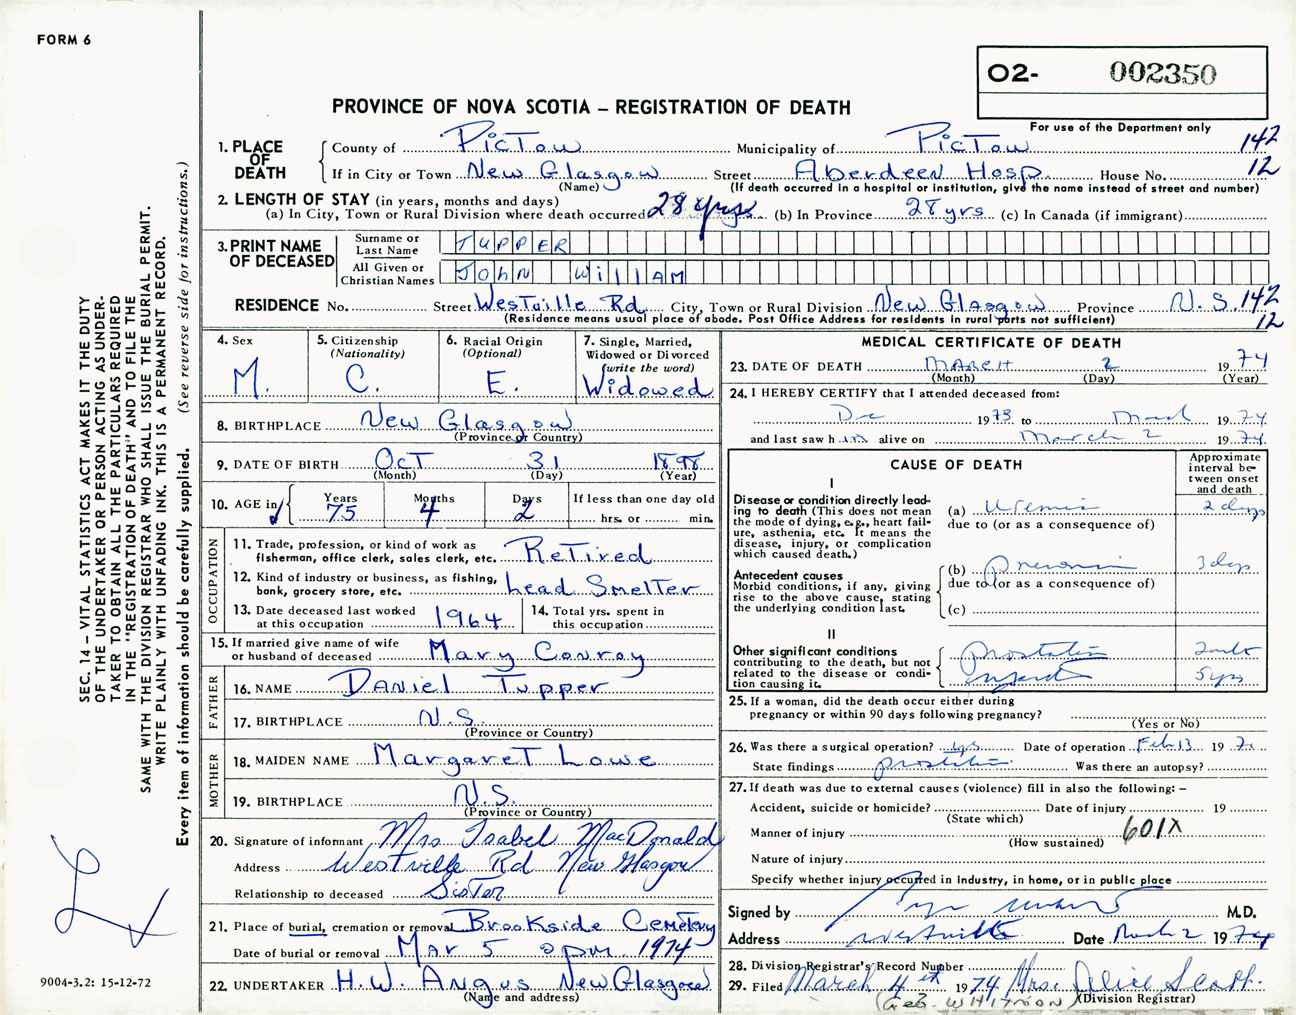 FORM 6
O2- 002350
PROVINCE OF NOVA SCOTIA – REGISTRATION OF DEATH
For use of the Department only
1. PLACE OF DEATH
County of PicTou Municipality of PicTou 142
If in City or Town New Glasgow Street Aberdeen Hosp. House No. 12
(Name) (If death occurred in a hospital or institution, give the name instead of street and number)
2. LENGTH OF STAY (in years, months and days)
(a) In City, Town or Rural Division where death occurred 28 yrs (b) In Province 28 yrs (c) In Canada (if immigrant)
3. PRINT NAME OF DECEASED
Surname or Last Name TUPPER
All Given or Christian Names JOHN WILLIAM
RESIDENCE No. Street Westville Rd City, Town or Rural Division New Glasgow Province N.S. 142
(Residence means usual place of abode. Post Office Address for residents in rural parts not sufficient) 12
4. Sex M.
5. Citizenship (Nationality) C.
6. Racial Origin (Optional) E.
7. Single, Married, Widowed or Divorced (write the word) Widowed
8. BIRTHPLACE New Glasgow
(Province or Country)
9. DATE OF BIRTH OcT 31 1898
(Month) (Day) (Year)
10. AGE in Years 75 Months 4 Days 2 If less than one day old
hrs. or min.
OCCUPATION
11. Trade, profession, or kind of work as fisherman, office clerk, sales clerk, etc. ReTired
12. Kind of industry or business, as fishing, bank, grocery store, etc. Lead Smelter
13. Date deceased last worked at this occupation 1964
14. Total yrs. spent in this occupation
15. If married give name of wife or husband of deceased Mary Conroy
FATHER
16. NAME Daniel Tupper
17. BIRTHPLACE N.S.
(Province or Country)
MOTHER
18. MAIDEN NAME MargareT Lowe
19. BIRTHPLACE N.S.
(Province or Country)
20. Signature of informant Mrs Isabel MacDonald
Address Westville Rd New Glasgow
Relationship to deceased SisTer
21. Place of burial, cremation or removal Brookside CemeTery
Date of burial or removal Mar 5 2 p.m. 1974
22. UNDERTAKER H.W. Angus New Glasgow
(Name and address)
MEDICAL CERTIFICATE OF DEATH
23. DATE OF DEATH MARCH 2 19 74
(Month) (Day) (Year)
24. I HEREBY CERTIFY that I attended deceased from:
Dec 1973 to March 19 74
and last saw him alive on March 2 19 74
CAUSE OF DEATH
Approximate interval between onset and death
I
Disease or condition directly leading to death (This does not mean the mode of dying, e.g., heart failure, asthenia, etc. It means the disease, injury, or complication which caused death.)
(a) Uremia 2 days
due to (or as a consequence of)
Antecedent causes
Morbid conditions, if any, giving rise to the above cause, stating the underlying condition last.
(b) Pneumonia 3 days
due to (or as a consequence of)
(c)
II
Other significant conditions contributing to the death, but not related to the disease or condition causing it.
5 yrs
25. If a woman, did the death occur either during pregnancy or within 90 days following pregnancy?
(Yes or No)
26. Was there a surgical operation? yes Date of operation Feb 13 19
State findings Was there an autopsy?
27. If death was due to external causes (violence) fill in also the following: –
Accident, suicide or homicide? Date of injury 19
(State which)
Manner of injury 601X
(How sustained)
Nature of injury
Specify whether injury occurred in industry, in home, or in public place
Signed by M.D.
Address Westville Date March 2 19 74
28. Division Registrar's Record Number
29. Filed March 4th 1974 Mrs. Alice Scott.
(Division Registrar)
SEC. 14 – VITAL STATISTICS ACT MAKES IT THE DUTY
OF THE UNDERTAKER OR PERSON ACTING AS UNDER-
TAKER TO OBTAIN ALL THE PARTICULARS REQUIRED
IN THE "REGISTRATION OF DEATH" AND TO FILE THE
SAME WITH THE DIVISION REGISTRAR WHO SHALL ISSUE THE BURIAL PERMIT.
WRITE PLAINLY WITH UNFADING INK. THIS IS A PERMANENT RECORD.
Every item of information should be carefully supplied. (See reverse side for instructions.)
9004-3.2: 15-12-72